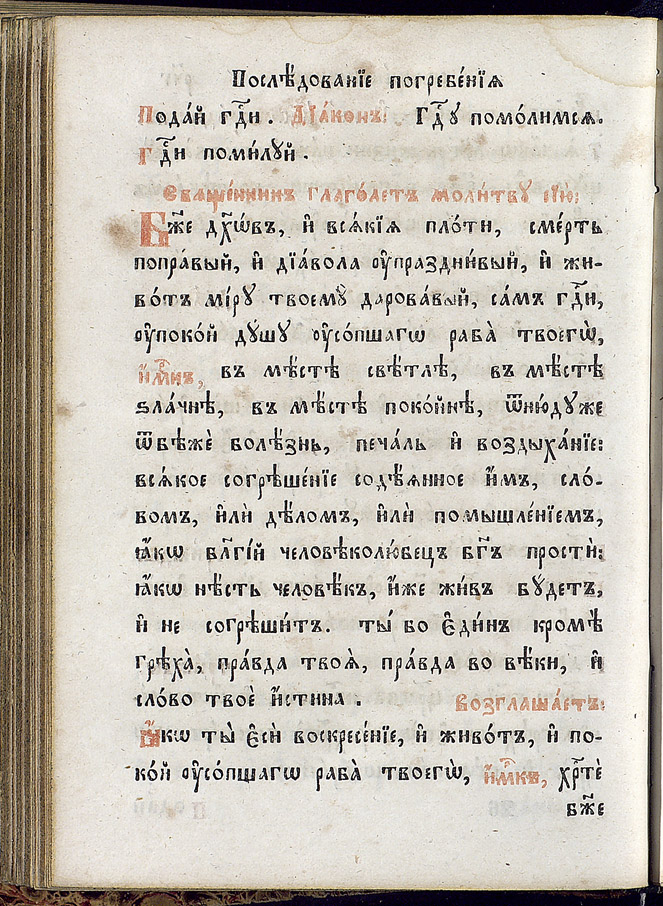 Послѣ́дованїе погребе́нїѧ
Пода́й гдⷭ҇и. Дїа́конъ: Гдⷭ҇ꙋ помо́лимсѧ.
Гдⷭ҇и поми́лꙋй.
Свѧще́нникъ глаго́летъ моли́твꙋ сїю̀:
Бж҃е дх҃ѡ́въ, и҆ всѧ́кїѧ пло́ти, сме́рть
попра́вый, и҆ дїа́вола ᲂу҆праздни́вый, и҆ жи-
во́тъ мі́рꙋ твоемꙋ̀ дарова́вый, са́мъ гдⷭ҇и,
ᲂу҆поко́й дꙋ́шꙋ ᲂу҆со́пшагѡ раба̀ твоегѡ̀,
и҆́мкъ, въ мѣ́стѣ свѣ́тлѣ, въ мѣ́стѣ
ѕла́чнѣ, въ мѣ́стѣ поко́йнѣ, ѿню́дꙋже
ѿбѣжѐ болѣ́знь, печа́ль и҆ воздыха́нїе:
всѧ́кое согрѣше́нїе содѣ́ѧнное и҆́мъ, сло́-
вомъ, и҆лѝ дѣ́ломъ, и҆лѝ помышле́нїемъ,
ꙗ҆́кѡ бл҃гі́й человѣколю́бецъ бг҃ъ простѝ:
ꙗ҆́кѡ нѣ́сть человѣ́къ, и҆́же жи́въ бꙋ́детъ,
и҆ не согрѣши́тъ. ты́ бо є҆ди́нъ кромѣ̀
грѣха̀, пра́вда твоѧ̀, пра́вда во вѣ́ки, и҆
сло́во твоѐ и҆́стина. Возглаша́етъ:
Ꙗ҆́кѡ ты̀ є҆сѝ воскресе́нїе, и҆ живо́тъ, и҆ по-
ко́й ᲂу҆со́пшагѡ раба̀ твоегѡ̀, и҆́мкъ, хрⷭ҇тѐ
бж҃е